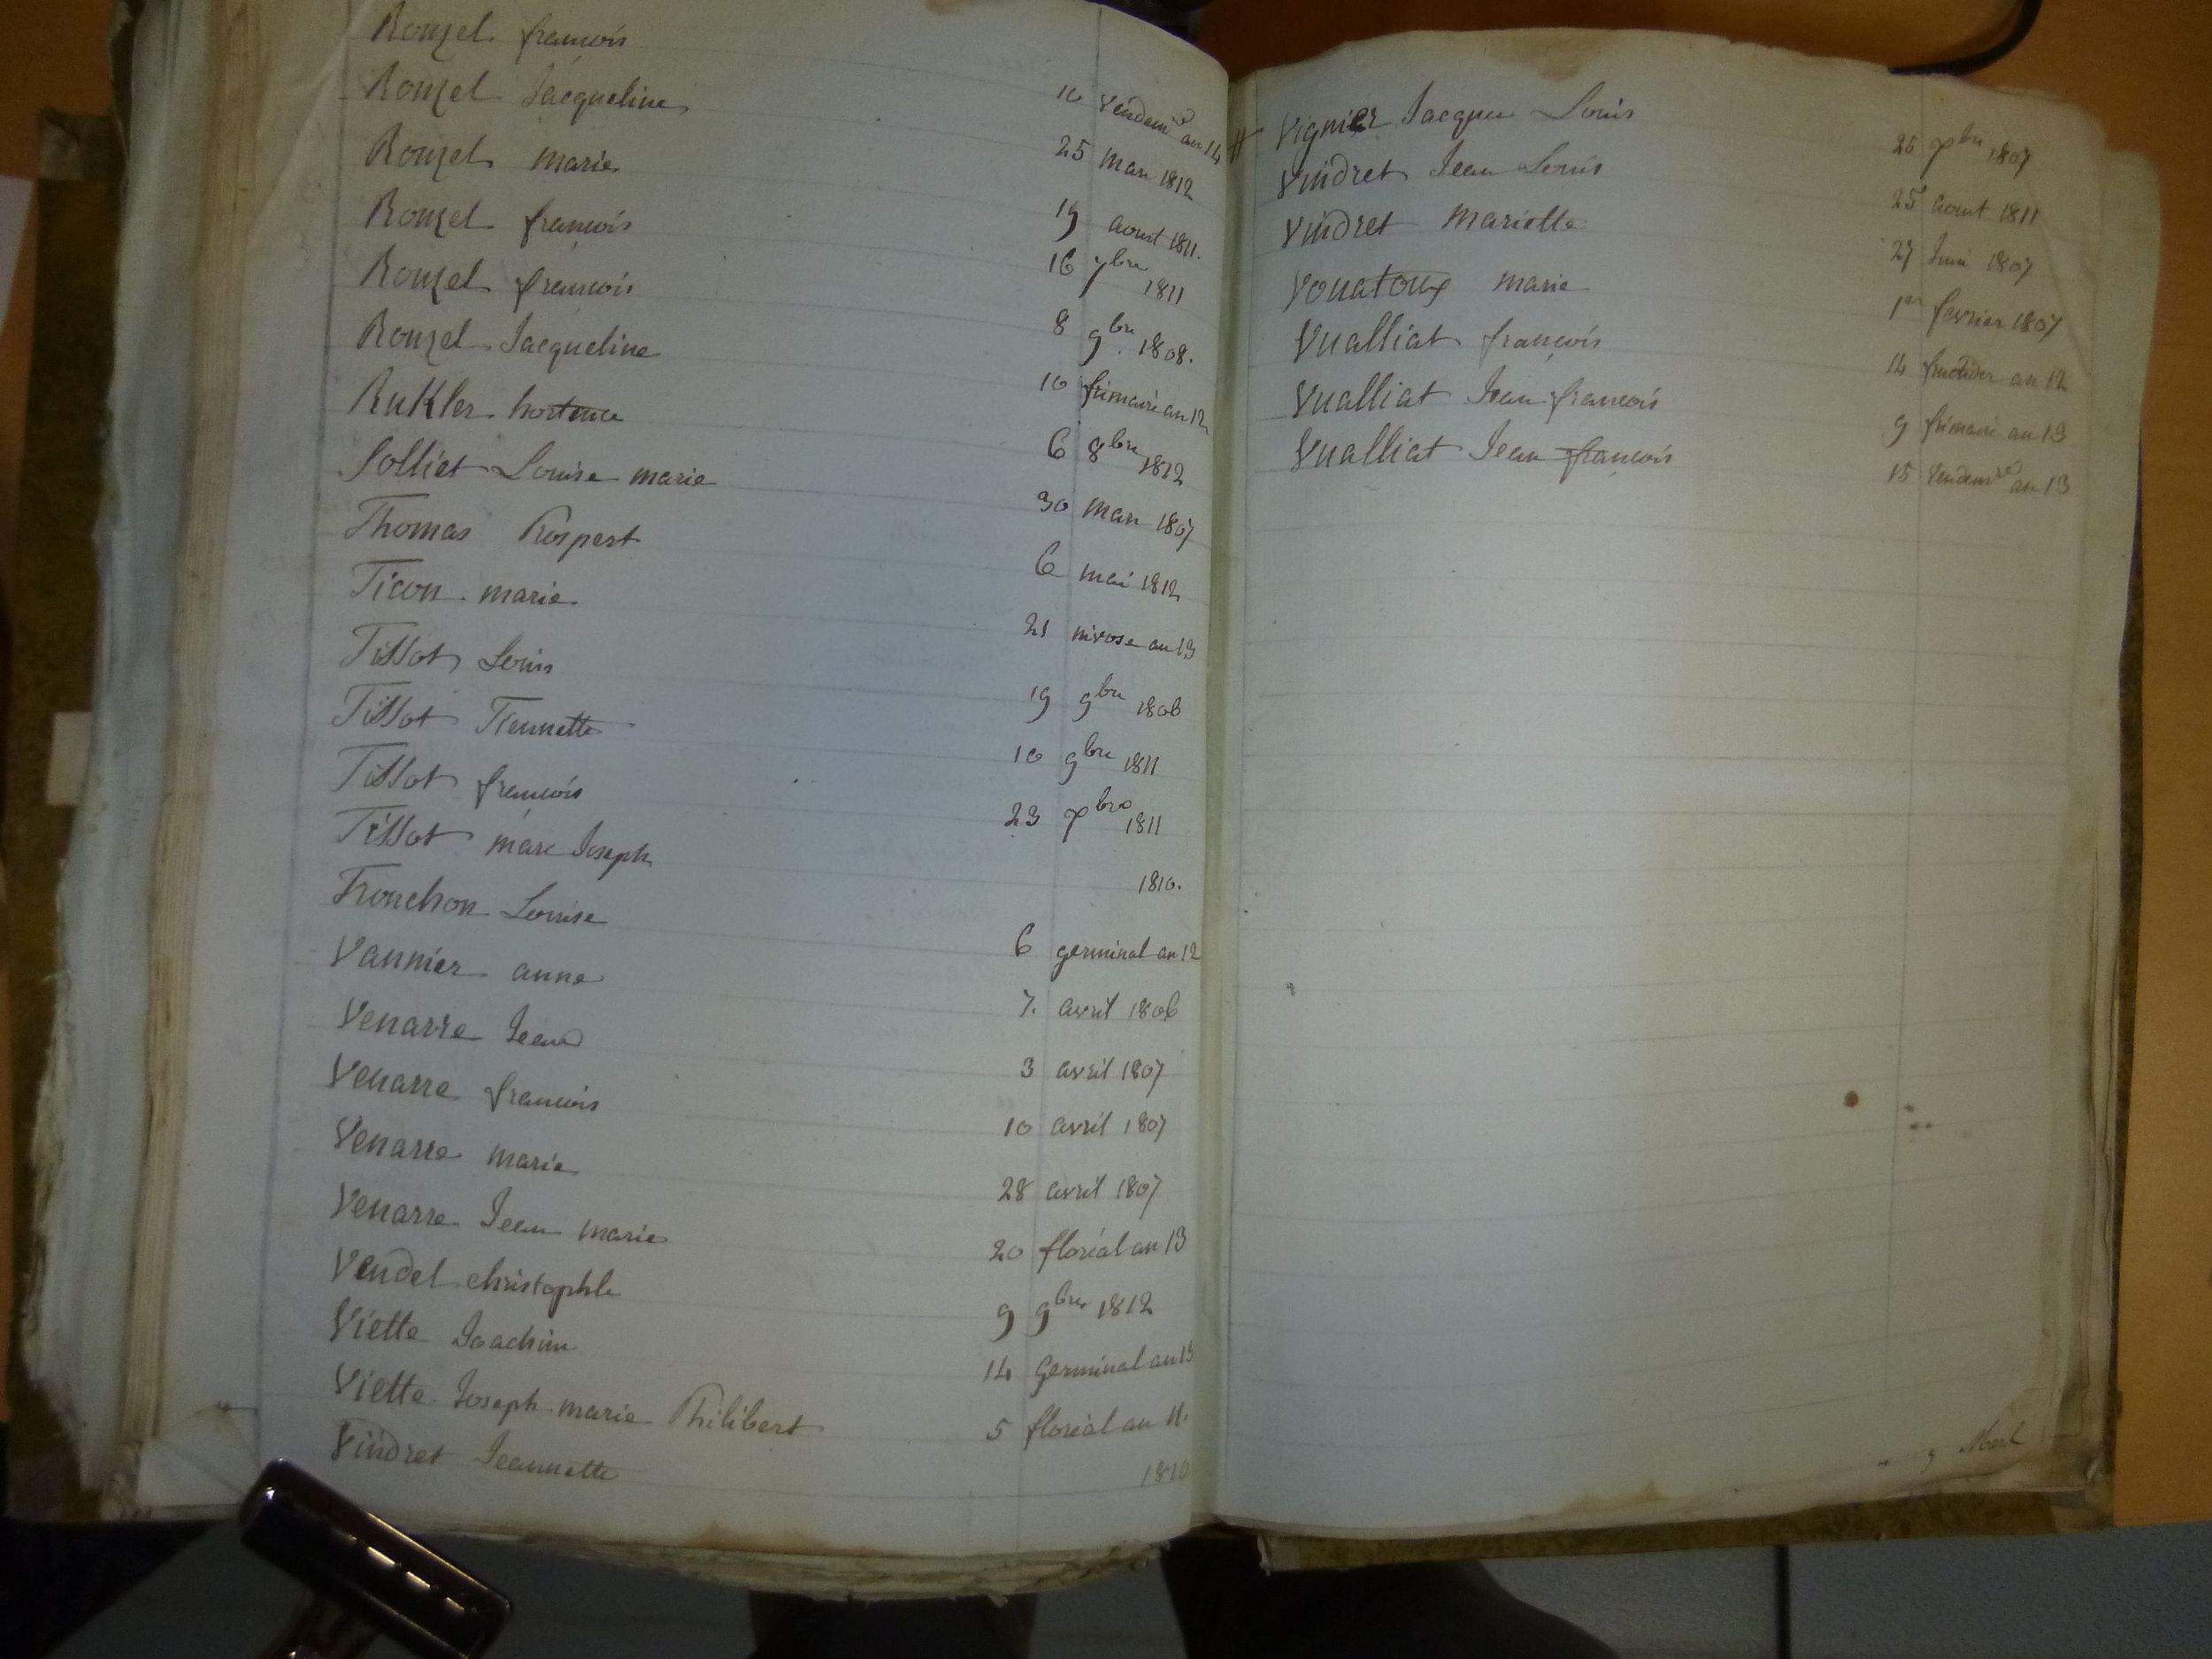 Rouzel françois 10 vendemre an 14
Rouzel Jacqueline 25 mars 1812
Rouzel marie 19 aoust 1811.
Rouzel françois 16 7bre 1811
Rouzel françois 8 9bre 1808.
Rouzel Jacqueline 10 frimaire an 12
Rukler hortence 6 8bre 1812
Solliet Louise marie 30 mars 1807
Thomas Prospert 6 mai 1812
Ticon marie 21 nivose an 13
Tissot Louis 19 9bre 1806
Tissot Tiennette 10 9bre 1811
Tissot françois 23 7bre 1811
Tissot marc Joseph 1810.
Trouchon Louise 6 germinal an 12
Vannier anne 7. avril 1806
Venarre Jean 3 avril 1807
Venarre françois 10 avril 1807
Venarre marie 28 avril 1807
Venarre Jean marie 20 floréal an 13
Vendel christophle 9 9bre 1812
Viette Joachim 14 germinal an 13
Viette Joseph marie Philibert 5 floréal an 11.
Vindret Jeannette 1810
# Vignier Jacques Louis 26 7bre 1807
Vindret Jean Louis 25 aout 1811
Vindret Mariette 27 Juin 1807
Vouatoux marie 1er fevrier 1807
Vualliat françois 14 fructidor an 12
Vualliat Jean françois 9 frimaire an 13
Vualliat Jean françois 15 vendemre an 13